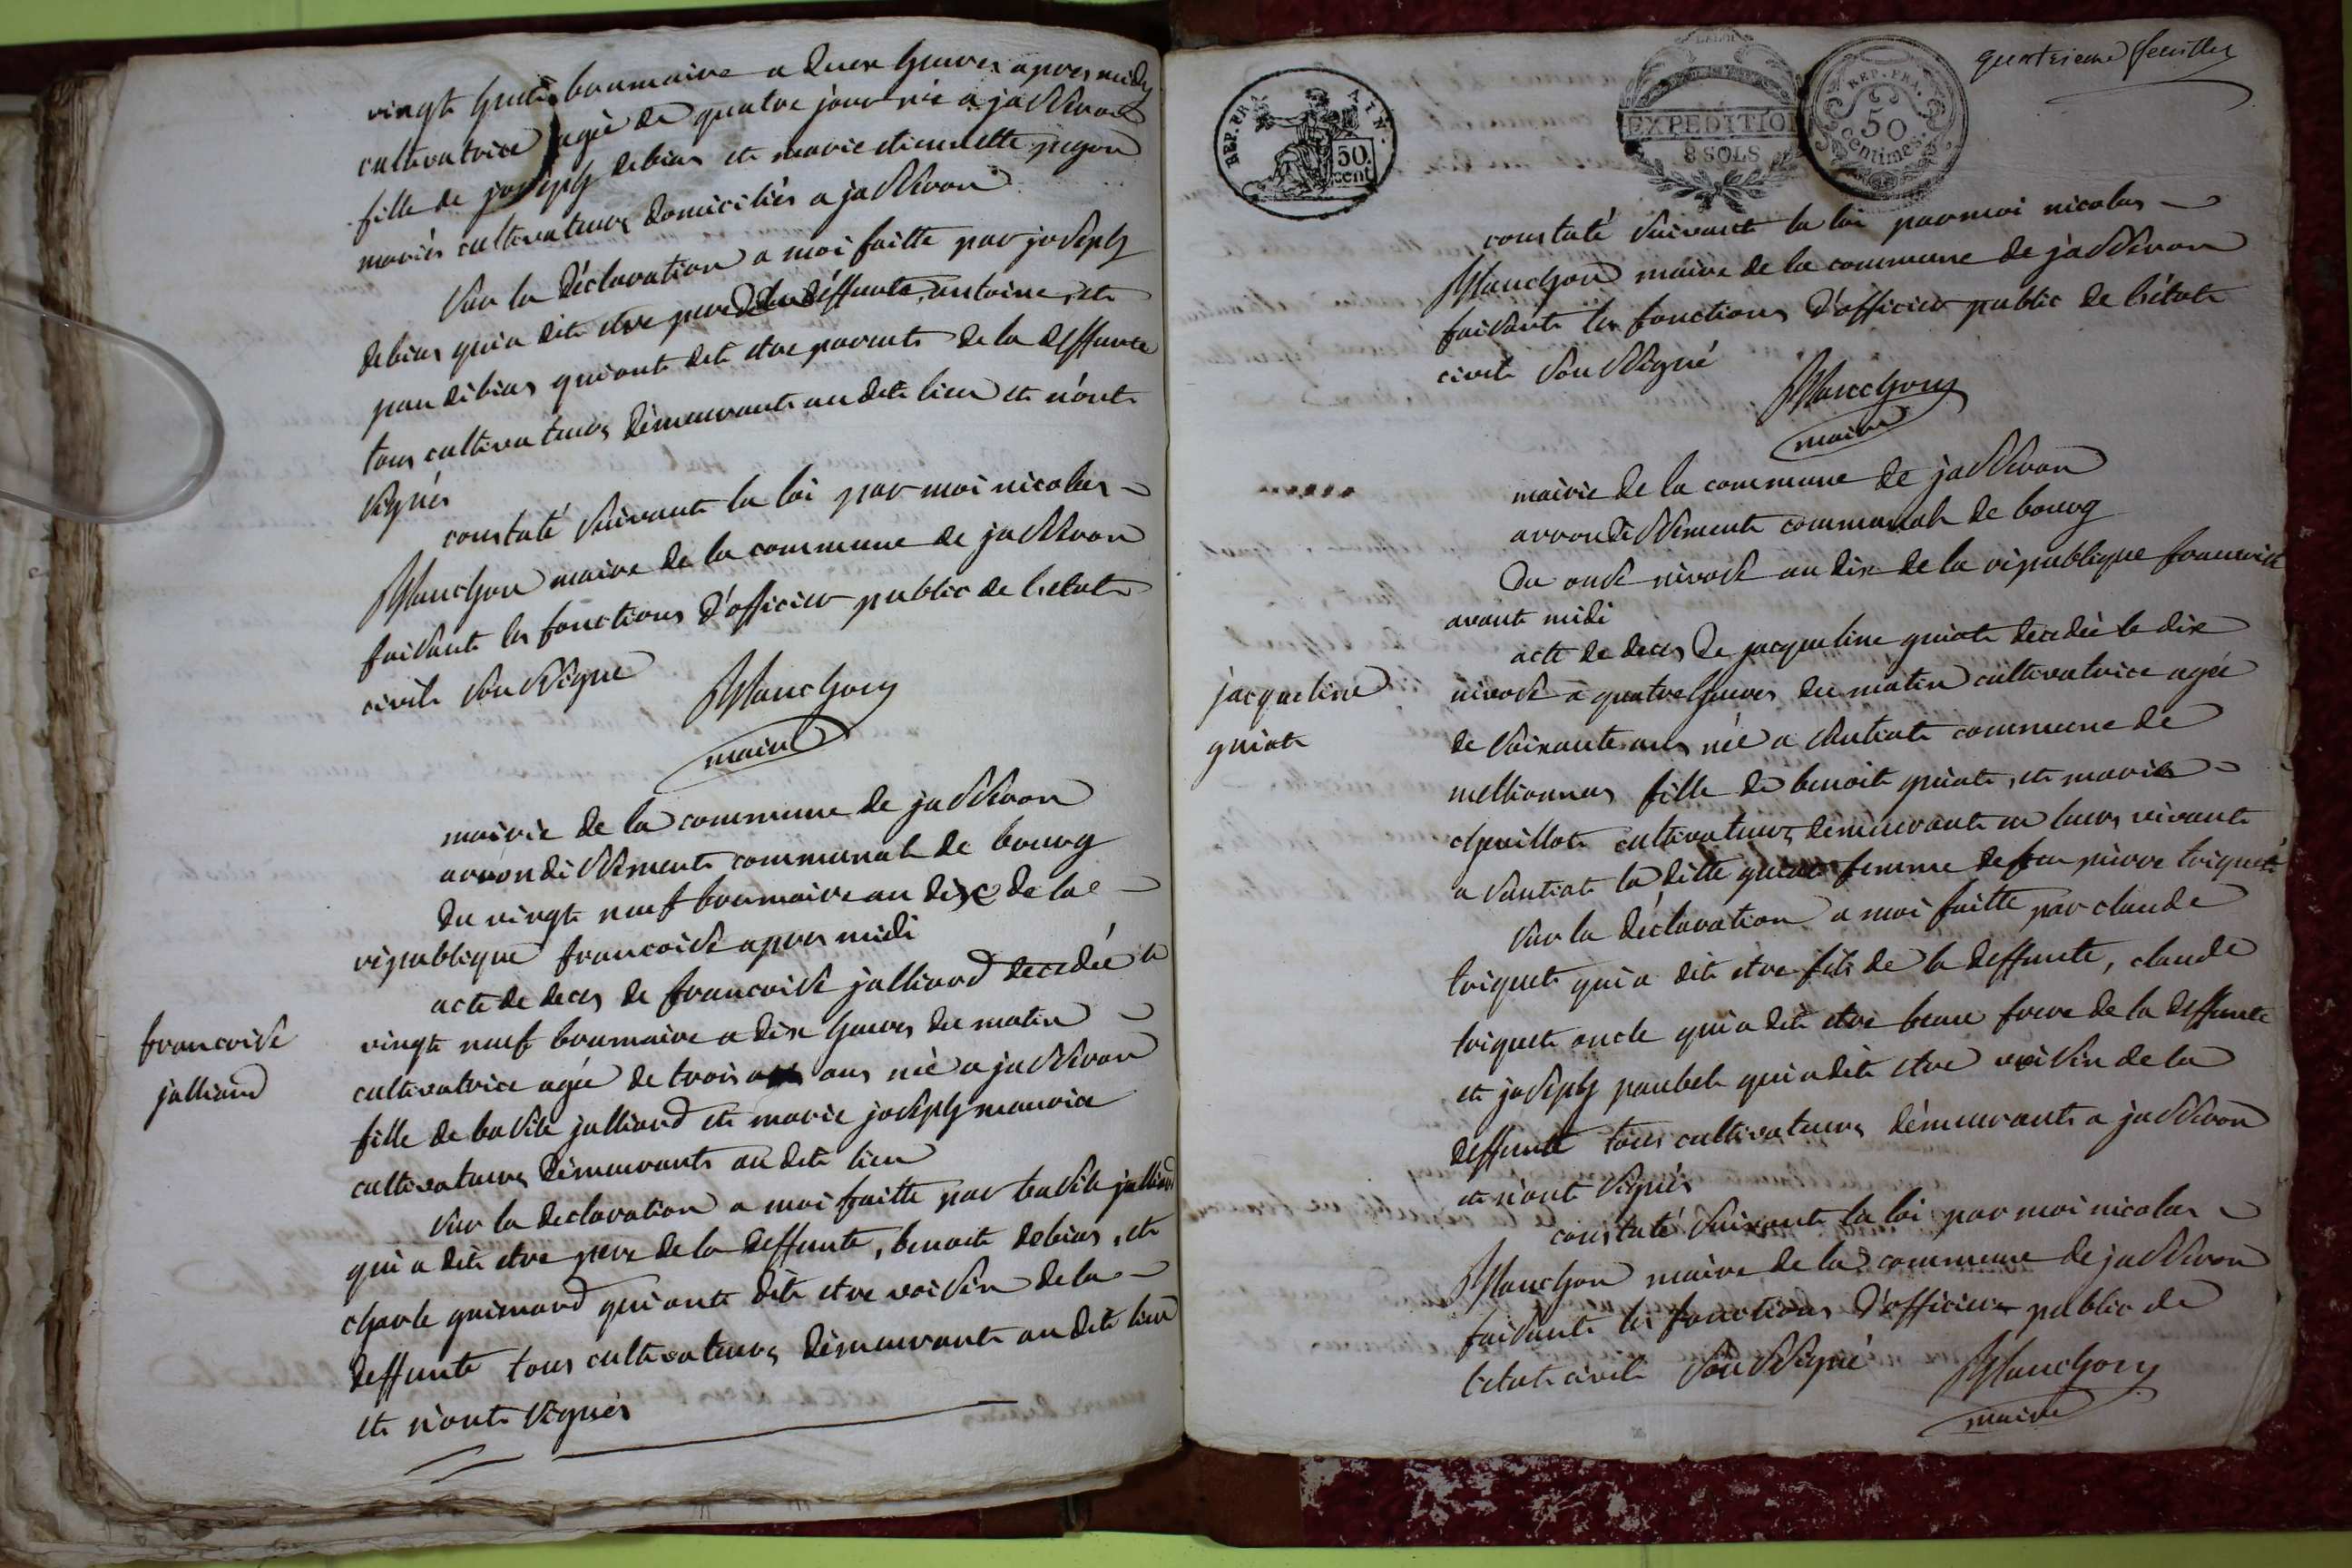 vingt huit brumaire a deux heures apres midy
cultivatrice agée de quatre jour née a jasseron
fille de joseph debias et marie etiennette pugon
mariés cultivateurs domiciliés a jasseron
Sur la déclaration a moi faitte par joseph
debias qui a dit etre pere de la deffunte, antoine, et
debias qui ont dit etre parents de la deffunte
tous cultivateurs demeurants au dit lieu et n'ont
signés
constaté suivant la loi par moi nicolas
Manchon maire de la commune de jasseron
faisant les fonctions d'officier public de l'etat
civil sousigné
Manchon
maire
mairie de la commune de jasseron
arrondissement communal de bourg
du vingt neuf brumaire an dix de la
république francoise apres midi
acte de deces de francoise jalliard decedée le
francoise
jalliard
vingt neuf brumaire a dix heures du matin
cultivatrice agée de trois ans née a jasseron
fille de basile jalliard et marie joseph mauvice
cultivateurs demeurants au dit lieu
Sur la declaration a moi faitte par basile jalliard
qui a dit etre pere de la deffunte, benoit debias, et
charle guimard qui ont dit etre voisin de la
deffunte tous cultivateurs demeurants au dit lieu
et n'ont signés
quatrieme feuillet
REP. FRA.
50
cent
EXPEDITION
8 SOLS
REP. FRA.
50
centimes
constaté suivant la loi par moi nicolas
Manchon maire de la commune de jasseron
faisant les fonctions d'officier public de l'état
civil sousigné
Manchon
maire
mairie de la commune de jasseron
arrondissement communal de bourg
Du onse nivose an dix de la république francoise
avant midi
acte de deces de jacqueline guiot decedée le dix
jacqueline
guiot
nivose a quatre heures du matin cultivatrice agée
de soixante ans née a santiat commune de
mellionnas fille de benoit guiot, et marie
chevillot cultivateurs demeurants en leurs vivants
a santiat la ditte guiot femme de feu pierre triquet
Sur la déclaration a moi faitte par claude
triquet qui a dit etre fils de la deffunte, claude
triquet oncle qui a dit etre beau frere de la deffunte
et joseph paubel qui a dit etre voisin de la
deffunte tous cultivateurs demeurants a jasseron
et n'ont signés
constaté suivant la loi par moi nicolas
Manchon maire de la commune de jasseron
faisant les fonctions d'officier public de
l'etat civil sousigné
Manchon
maire